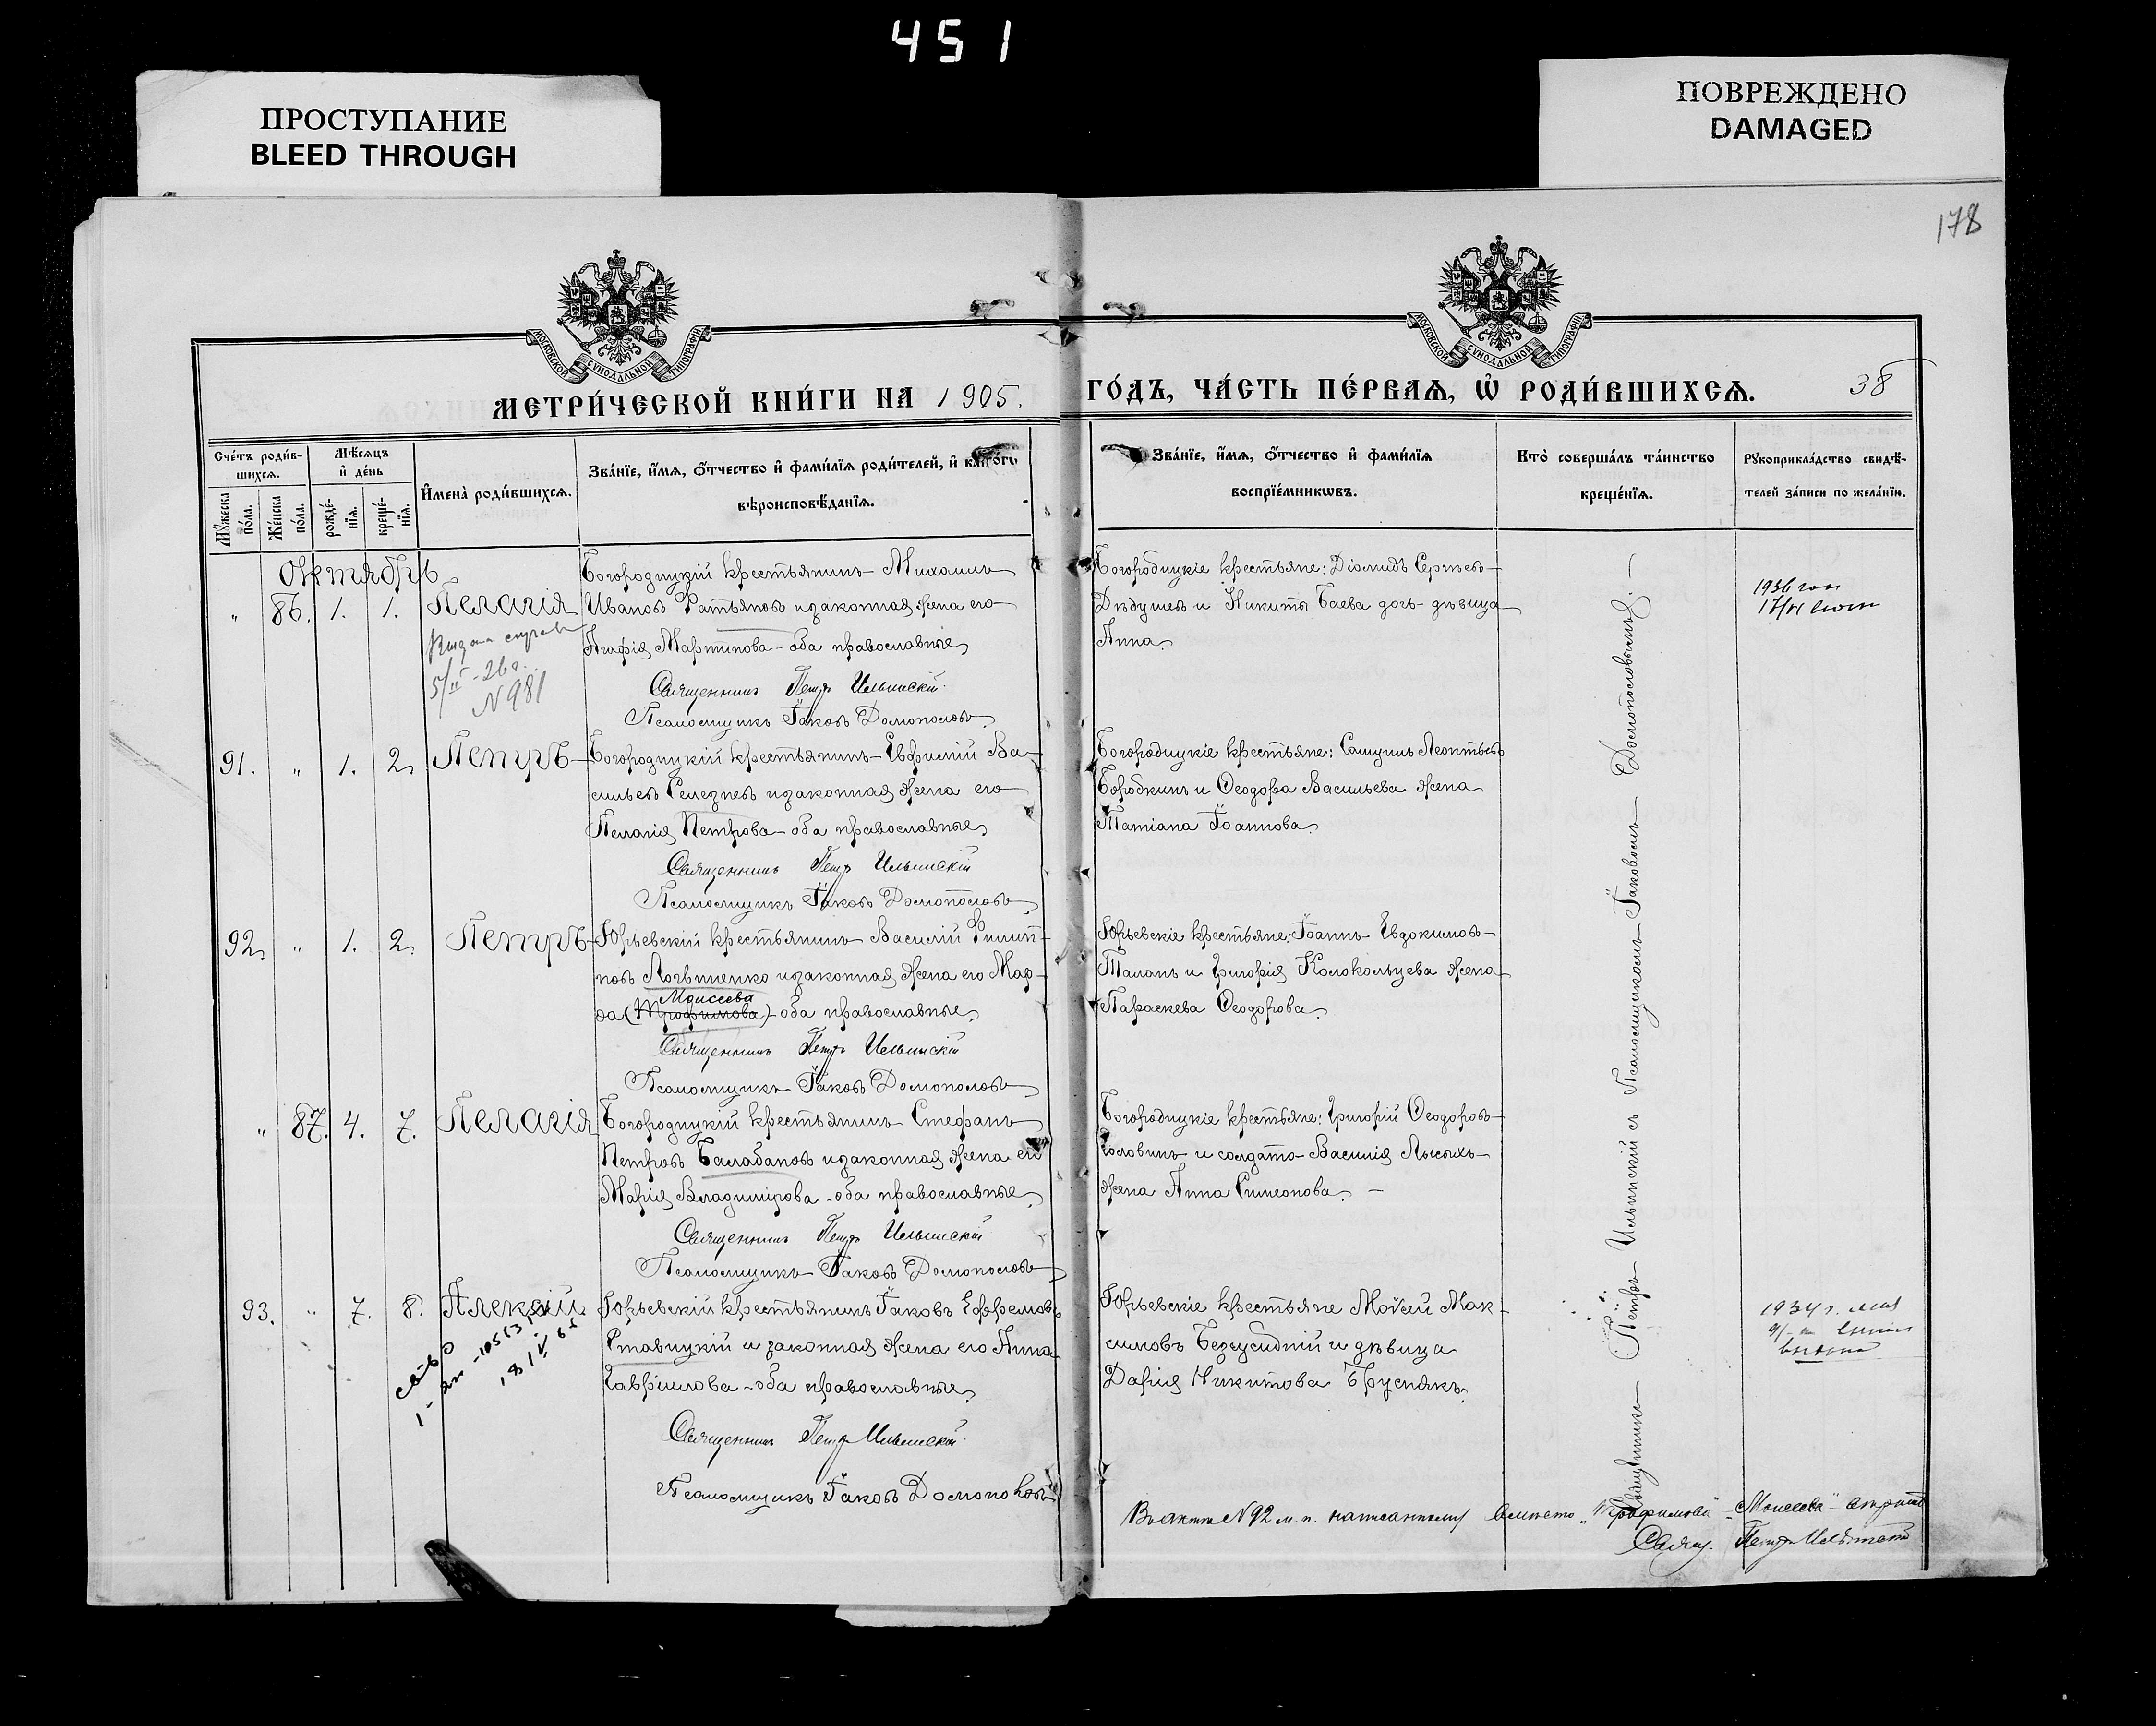 451
ПРОСТУПАНИЕ
BLEED THROUGH
ПОВРЕЖДЕНО
DAMAGED
178
МОСКОВСКОЙ СѴНОДАЛЬНОЙ ТИПОГРАФІИ
МОСКОВСКОЙ СѴНОДАЛЬНОЙ ТИПОГРАФІИ
МЕТРИ́ЧЕСКОЙ КНИ́ГИ НА 1905. ГО́ДЪ, ЧА́СТЬ ПЕ́РВАЯ, Ѡ РОДИ́ВШИХСЯ.
38
Сче́тъ роди́вшихся.
Мꙋ́жеска по́ла.
Же́нска по́ла.
Мѣ́сяцъ и҆ де́нь
рожде́нїя.
креще́нїя.
И҆мена̀ роди́вшихся.
Зва́нїе, и҆́мя, ѻ҆́тчество и҆ фами́лїя роди́телей, и҆ како́гѡ
вѣроисповѣ́данїя.
Зва́нїе, и҆́мя, ѻ҆́тчество и҆ фами́лїя
воспрїе́мникѡвъ.
Кто̀ соверша́лъ та́инство
креще́нїя.
Рꙋкоприкла́дство свидѣ́-
телей за́писи по жела́нїю.
Октябрь
" 86. 1. 1. Пелагія
Богородицкій крестьянинъ Михаилъ
Ивановъ Фатьяновъ и законная жена его
Агафія Мартинова - оба православные.
Священникъ Петръ Ильинскій
Псаломщикъ Іаковъ Домополовъ.
Выдана справк
5/II - 26 г.
N 981
Богородицкіе крестьяне: Діомидъ Сергѣевъ
Дѣдушевъ и Никиты Баева дочь - дѣвица
Анна.
1936 год
91. " 1. 2. Петръ
Богородицкій крестьянинъ - Евфимій Ва-
сильевъ Селезневъ и законная жена его
Пелагія Петрова - оба православные.
Священникъ Петръ Ильинскій
Псаломщикъ Іаковъ Домополовъ.
Богородицкіе крестьяне: Самуилъ Леонтьевъ
Бородкинъ и Ѳеодора Васильева жена
Татіана Іоаннова.
92. " 1. 2. Петръ
Юрьевскій крестьянинъ Василій Филип-
повъ Логвиненко и законная жена его Мар-
Моисеева
ѳа (Трофимова) - оба православные.
Священникъ Петръ Ильинскій
Псаломщикъ Іаковъ Домополовъ
Юрьевскіе крестьяне: Іоаннъ Евдокимовъ
Талапъ и Григорія Колокольцева жена
Параскева Ѳеодорова.
" 87. 4. 7. Пелагія
Богородицкій крестьянинъ Стефанъ
Петровъ Балабановъ и законная жена его
Марія Владимірова - оба православные.
Священникъ Петръ Ильинскій
Псаломщикъ Іаковъ Домополовъ
Богородицкіе крестьяне: Григорій Ѳеодоровъ
Головинъ и солдата Василія Лысыхъ
жена Анна Симеонова. -
93. " 7. 8. Алексій
Юрьевскій крестьянинъ Іаковъ Ефремовъ
Ставицкій и законная жена его Анна
Гавріилова - оба православные.
Священникъ Петръ Ильинскій
Псаломщикъ Іаковъ Домополовъ
Юрьевскіе крестьяне Моѵсей Мак-
симовъ Безусидній и дѣвица
Дарія Никитова Бруснякъ.
1934 г. мая
Священникъ Петръ Ильинскій съ Псаломщикомъ Іаковомъ Домополовымъ.
Въ актѣ N 92 м. п. написанному вмѣсто „Трофимова" „Моисеева"
Свящ. Петръ Ильинскій